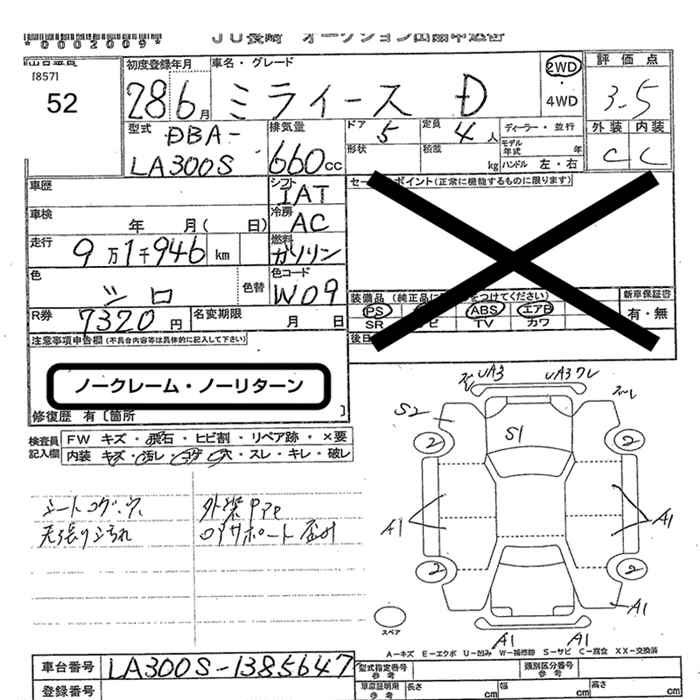 *0002009*
JU長崎 オークション出品申込書
[857]
52
初度登録年月
28年6月
車名・グレード
ミライース D
2WD
・
4WD
評価点
3.5
外装 内装
C C
型式
DBA-
LA300S
排気量
660cc
ドア
5
定員
4人
形状
積載
kg
ディーラー・並行
モデル年式 年
ハンドル 左・右
車歴
シフト
IAT
セールスポイント(正常に機能するものに限ります)
車検
年 月( 日)
冷房
AC
走行
9万1千946km
燃料
ガソリン
色
シロ
色替
色コード
W09
装備品
新車保証書
有・無
PS
ABS
エアB
SR
TV
カワ
R券
7320円
名変期限
月 日
注意事項申告欄(不具合内容等は具体的に記入して下さい)
ノークレーム・ノーリターン
修復歴 有〔箇所 〕
検査員
記入欄
FW キズ・飛石・ヒビ割・リペア跡・×要
内装 キズ・汚レ・コゲ・穴・スレ・キレ・破レ
シートコゲ、穴
天張りヨゴれ
外装
コアサポート
UA3
UA3ワレ
S2
S1
2
2
A1
A1
2
2
A1
A1
A1
スペア
A-キズ E-エクボ U-凹み W-補修跡 S-サビ C-腐食 XX-交換済
車台番号
LA300S-1385647
登録番号
型式指定番号
参考
類別区分番号
参考
車庫証明用
参考
長さ cm
幅 cm
高さ cm